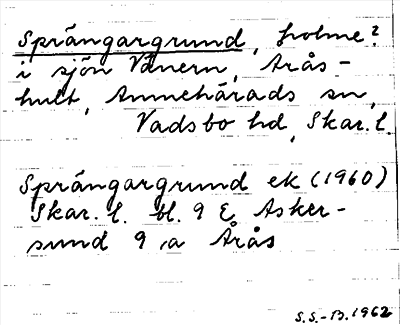 Sprängargrund, holme?
i sjön Vänern, Årås-
hult, Amnehärads sn,
Vadsbo hd, Skar. l.
Sprängargrund ek (1960)
Skar. l. bl. 9 E Asker-
sund 9 a Årås
S.S.-B. 1962